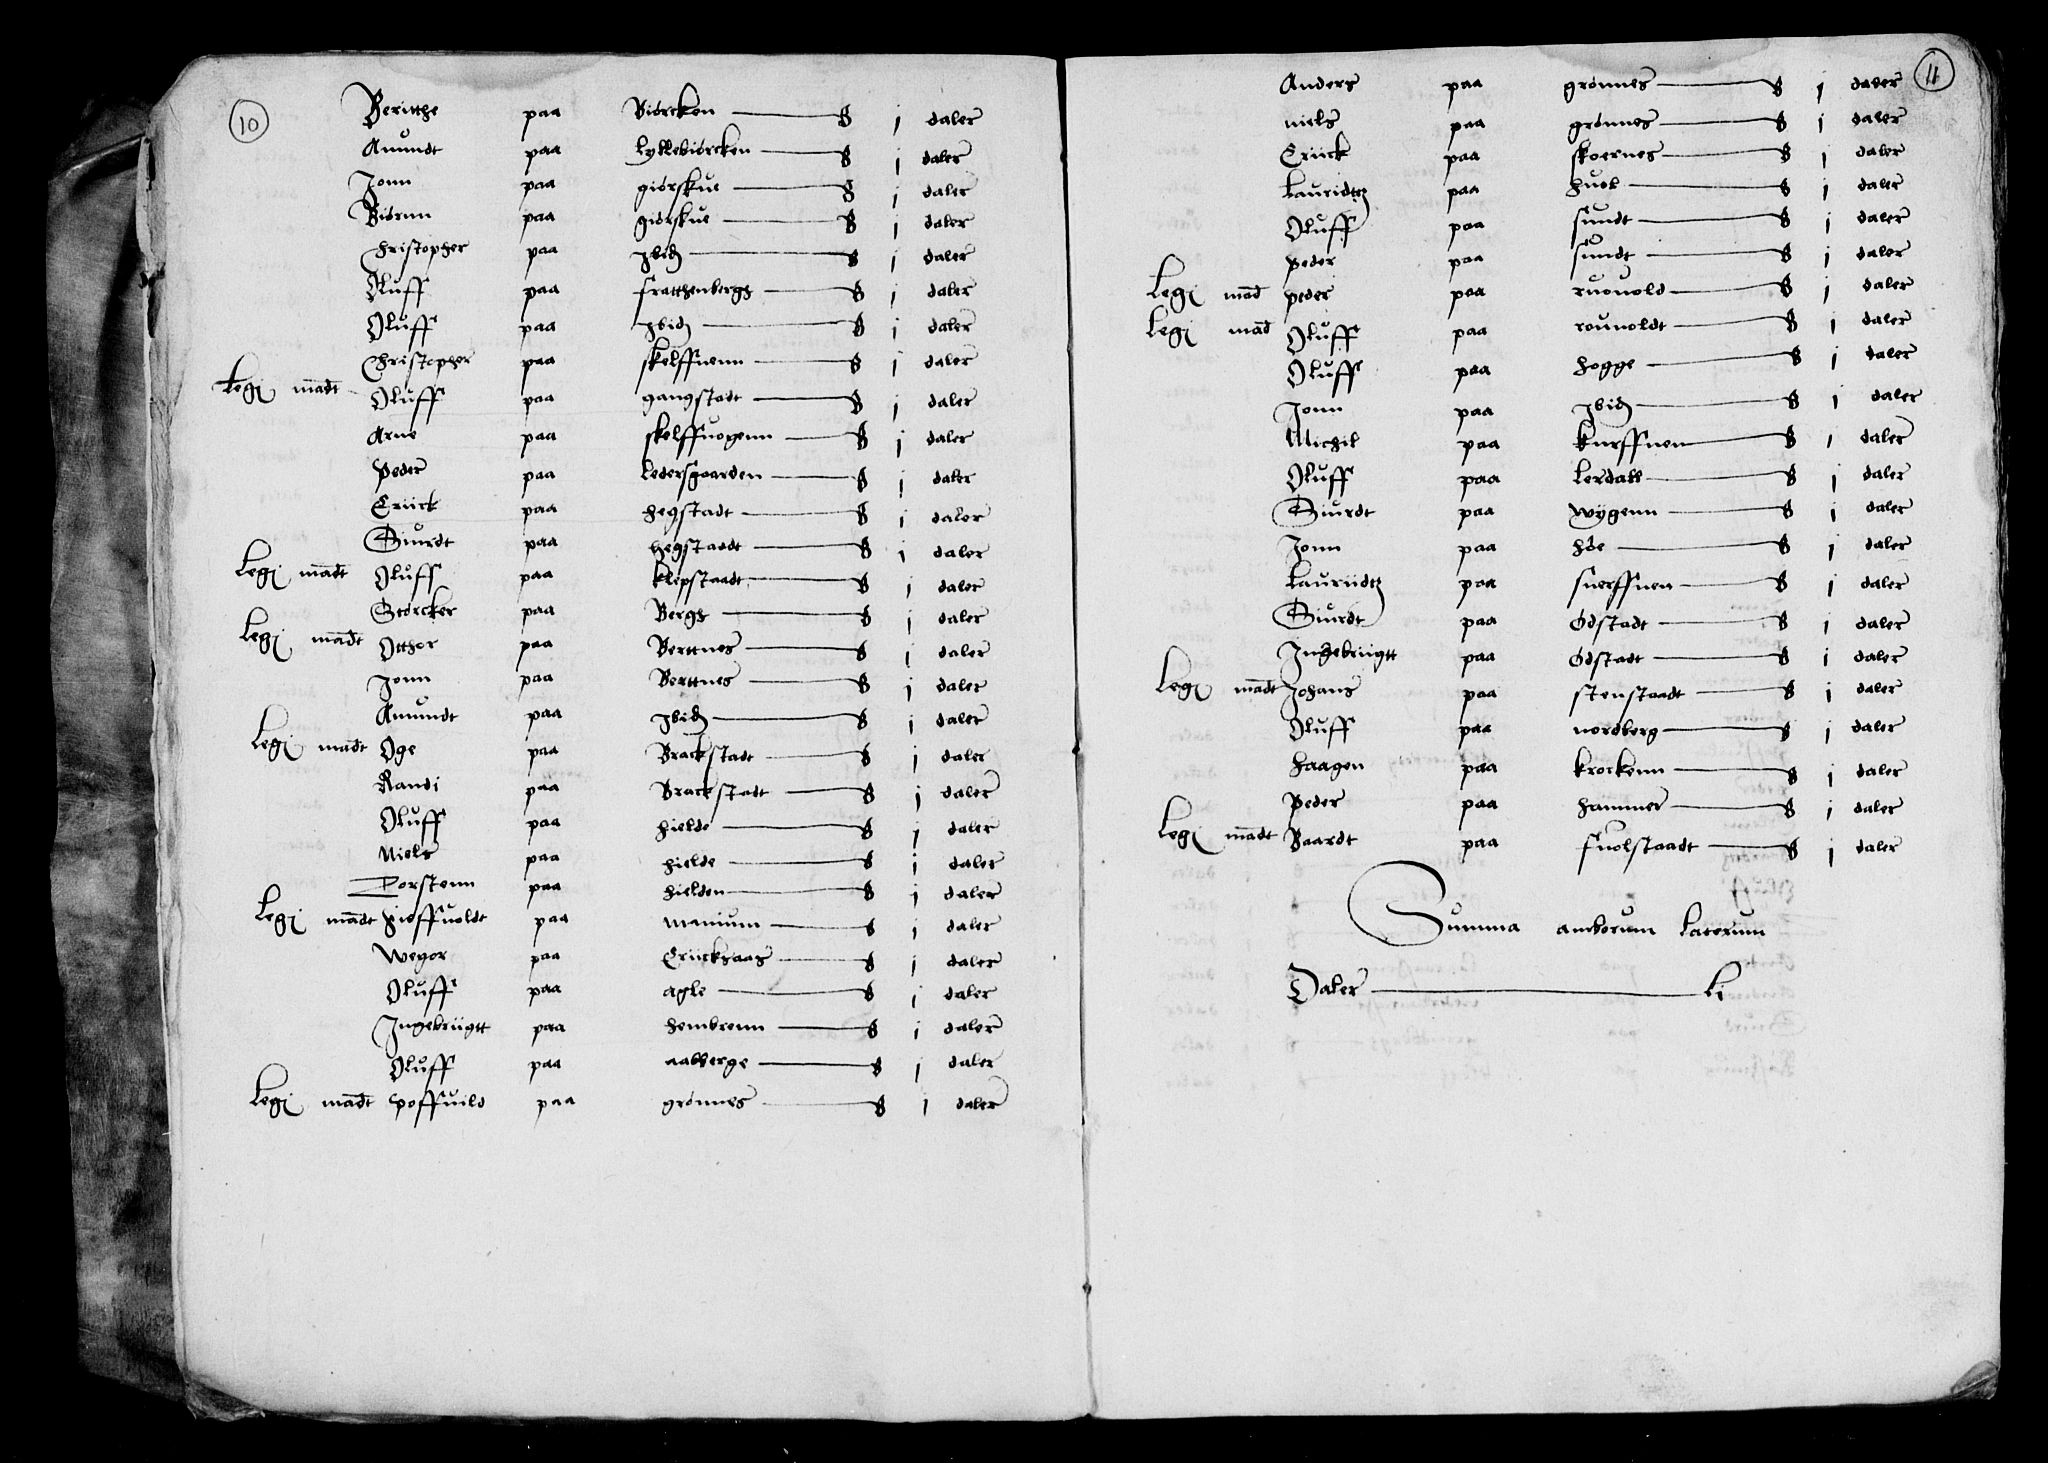 10
Beritthe paa Biörcken — ß j daler
Amundt paa lyllebiörcken — ß j daler
Jonn paa giörskue — ß j daler
Biörnn paa giörskue — ß j daler
Christopher paa Jbid — ß j daler
Oluff paa fratthenbergh — ß j daler
Oluff paa Jbid — ß j daler
Christopher paa skelffuenn — ß j daler
Legj madt Oluff paa gangstadt — ß j daler
Arne paa skelffuogenn — ß j daler
Peder paa Ledersgaarden — ß j daler
Eriick paa hegstadt — ß j daler
Siurdt paa hegstaadt — ß j daler
Legj madt Oluff paa klepstaadt — ß j daler
Störcker paa Bergh — ß j daler
Legj madt Otthor paa Berttnes — ß j daler
Jonn paa Berttnes — ß j daler
Amundt paa Jbid — ß j daler
Legj madt Oge paa Brackstadt — ß j daler
Randi paa Brackstadt — ß j daler
Oluff paa hielde — ß j daler
Niels paa hielde — ß j daler
Torstenn paa hielden — ß j daler
Legj madt hioffuoldt paa manium — ß j daler
Wegor paa Eriicksaas — ß j daler
Oluff paa agle — ß j daler
Jngebriigtt paa hembrenn — ß j daler
Oluff paa aalberge — ß j daler
Legj madt poffuild paa grönnes — ß j daler
11
Anders paa grönnes — ß j daler
niels paa grönnes — ß j daler
Eriick paa skoernes — ß j daler
Lauridtz paa huol — ß j daler
Oluff paa sundt — ß j daler
Peder paa sundt — ß j daler
Legj mad peder paa ruouold — ß j daler
Legj mad Oluff paa rouuoldt — ß j daler
Oluff paa hogge — ß j daler
Jonn paa Jbid — ß j daler
Michil paa kurffuen — ß j daler
Oluff paa lerdall — ß j daler
Siurdt paa wÿgenn — ß j daler
Jonn paa höe — ß j daler
Lauriidtz paa suerffuen — ß j daler
Siurdt paa Odstadt — ß j daler
Jngebriigtt paa Odstadt — ß j daler
Legj madt Johans paa stenstaadt — ß j daler
Oluff paa nordberg — ß j daler
haagen paa krockenn — ß j daler
Peder paa hammer — ß j daler
Legj madt Baardt paa fuolstaadt — ß j daler
Summa amborum laterum
Daler — Lj